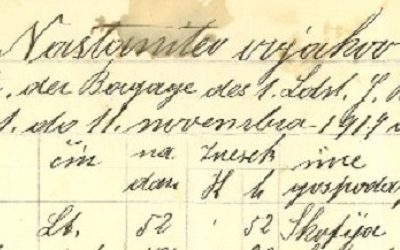 Nastanitev vojakov
der Bagage des 1. Ldst. J.
do 11. novembra 1917
čin na dan Znesek K h ime gospodar
Lt. 52 52 Škofija